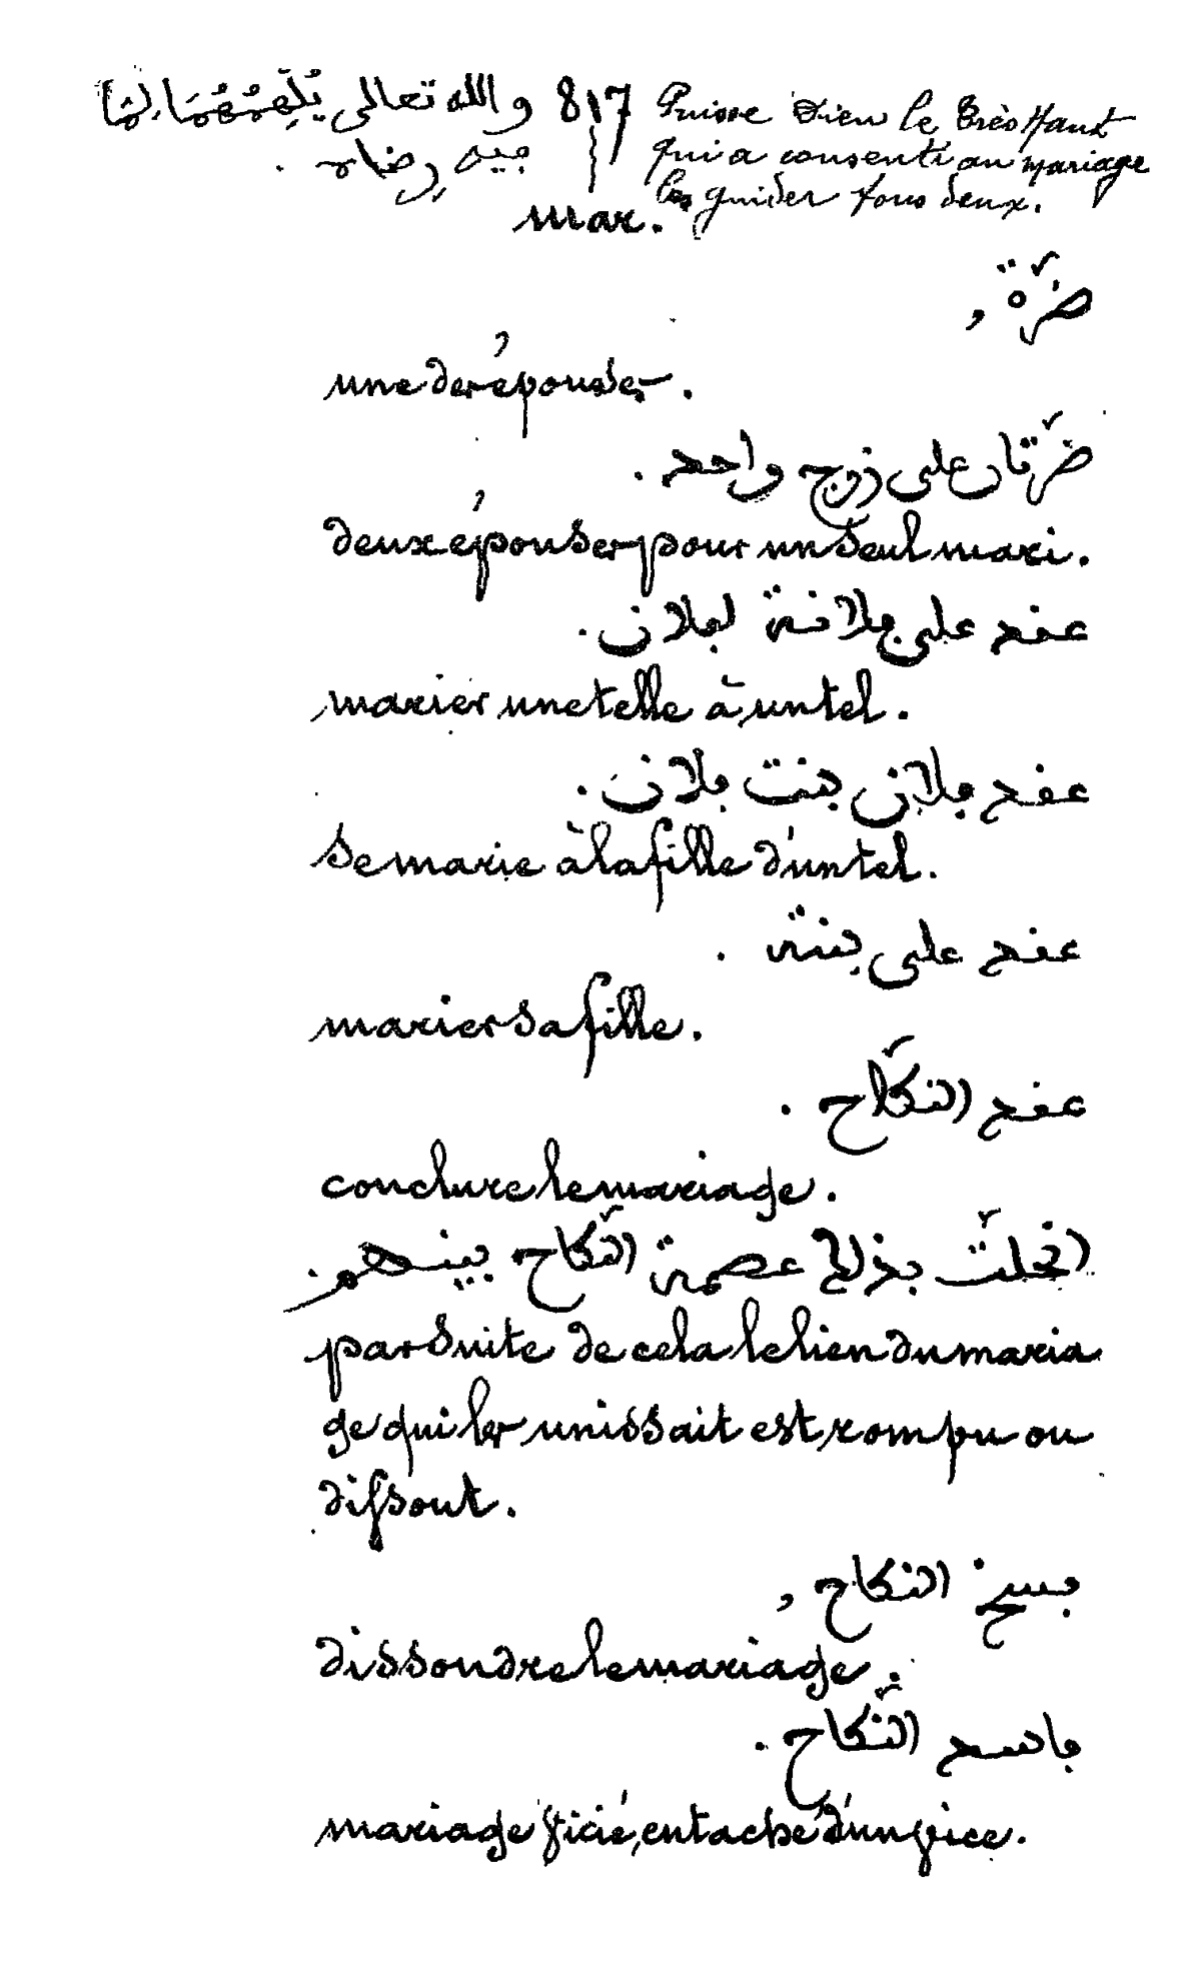 817
والله تعالى يُلْهِمُهُمَا لِمَا
ڢيه رضاه .
Puisse Dieu le Très Haut
qui a consenti au mariage
les guider tous deux.
mar.
ضَرّة ,
une des épouses.
ضَرّتان على زوج واحد .
deux épouses pour un seul mari.
عفد على ڢلانة لڢلان .
marier une telle à un tel.
عفد ڢلان بنت ڢلان .
se marie à la fille d'un tel.
عفد على بنته .
marier sa fille.
عفد النّكاح .
conclure le mariage.
انحلّت بذلك عصمة النّكاح بينهم .
par suite de cela le lien du maria
ge qui les unissait est rompu ou
dissout.
ڢسخ النكاح ,
dissoudre le mariage.
ڢاسد النّكاح .
mariage vicié, entaché d'un vice.